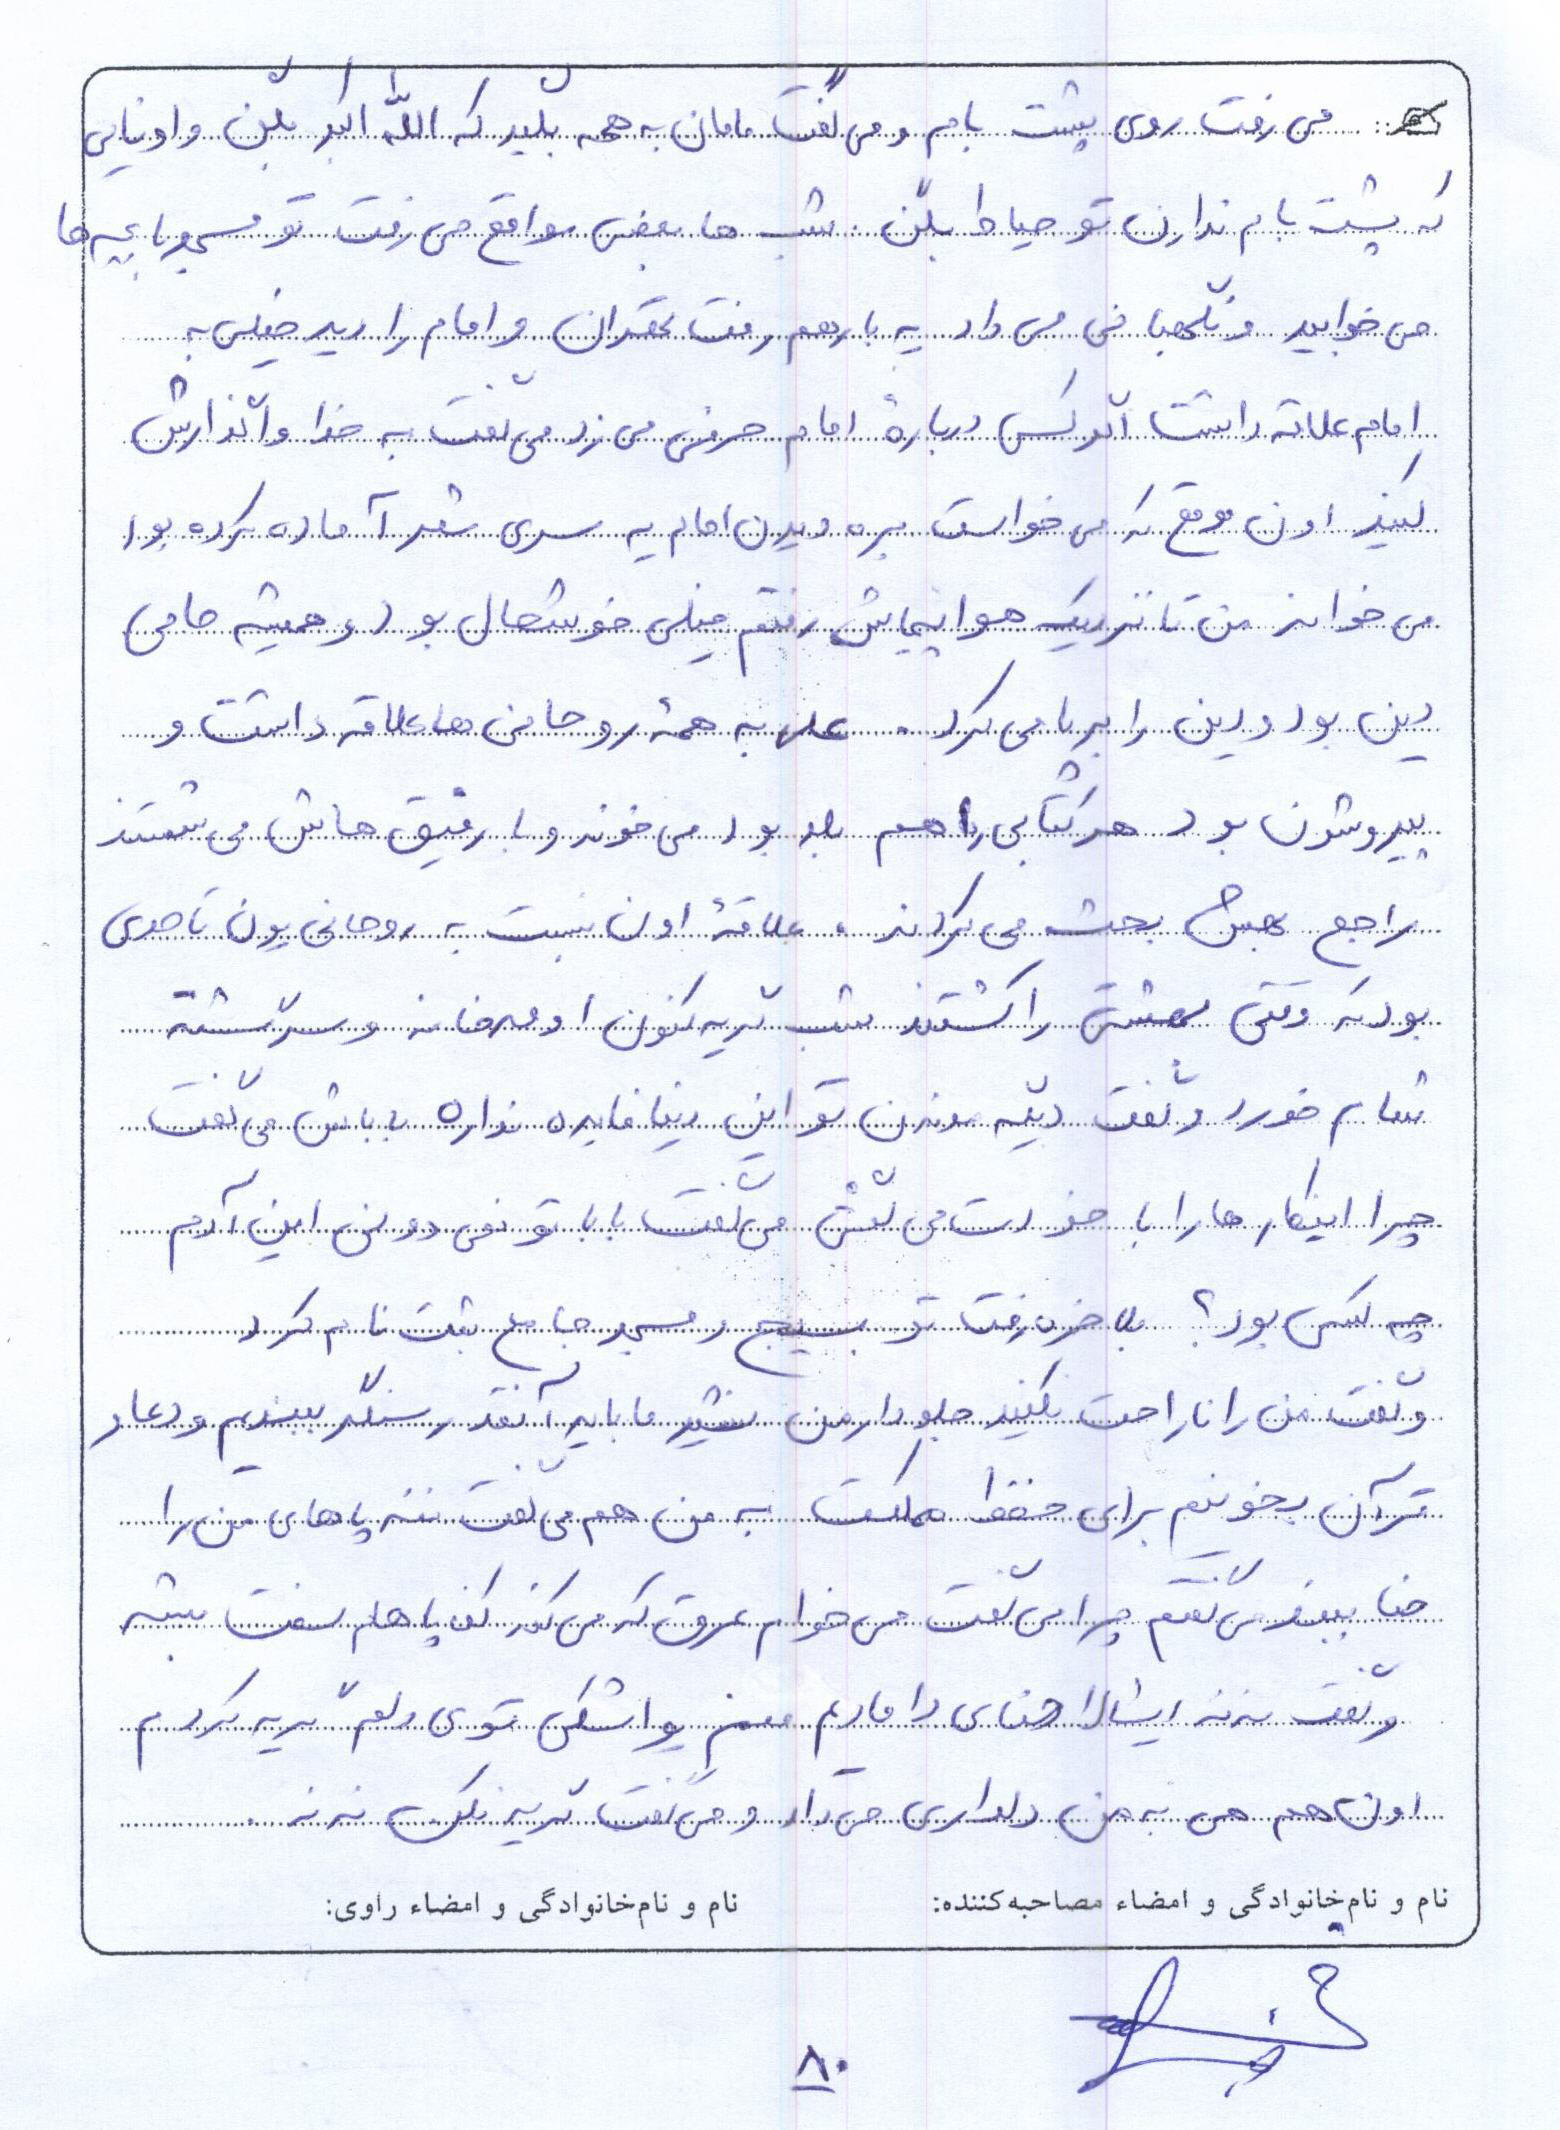 می رفت روی پشت بام و می گفت مامان به همه بگید که الله اکبر بگن و اونایی
که پشت بام ندارن تو حیاط بگن . شب ها بعضی مواقع می رفت تو مسجد با بچه ها
می خوابید و نگهبانی می داد یه بار هم رفت تهران و امام را دید خیلی به
امام علاقه داشت اگر کسی دربارهٔ امام حرفی می زد می گفت به خدا واگذارش
کنید اون موقع که می خواست بره دیدن امام یه سری شعر آماده کرده بود
می خواند من تا نزدیک هواپیماش رفتم خیلی خوشحال بود و همیشه حامی
دین بود و دین را بر پا می کرد . علی به همهٔ روحانی ها علاقه داشت و
پیروشون بود هر کتابی را هم بلد بود می خوند و با رفیق هاش می نشستند
راجع بهش بحث می کردند ، علاقهٔ اون نسبت به روحانی یون تا حدی
بود که وقتی بهشتی را کشتند شب گریه کنون اومد خانه و سرگشته
شام خورد و گفت دیگه موندن تو این دنیا فایده نداره باباش می گفت
چرا اینکارها را با خودت می کنی می گفت بابا تو نمی دونی این آدم
چه کسی بود؟ بلاخره رفت تو بسیج و مسجد جامع ثبت نام کرد
و گفت من را ناراحت نکنید جلودار من نشید ما باید آنقدر سنگر ببندیم و دعا و
قرآن بخونیم برای حفظ مملکت به من هم می گفت ننه پاهای من را
حنا ببند می گفتم چرا می گفت می خوام عروق که می کند کف پاهام سفت بشه
و گفت نه نه ایشالا حنای دامادیم منم یواشکی توی دلم گریه کردم
اون هم هی به من دلداری می داد و می گفت گریه نکن نه نه .
نام و نام‌خانوادگی و امضاء مصاحبه‌کننده:
نام و نام‌خانوادگی و امضاء راوی:
۸۰